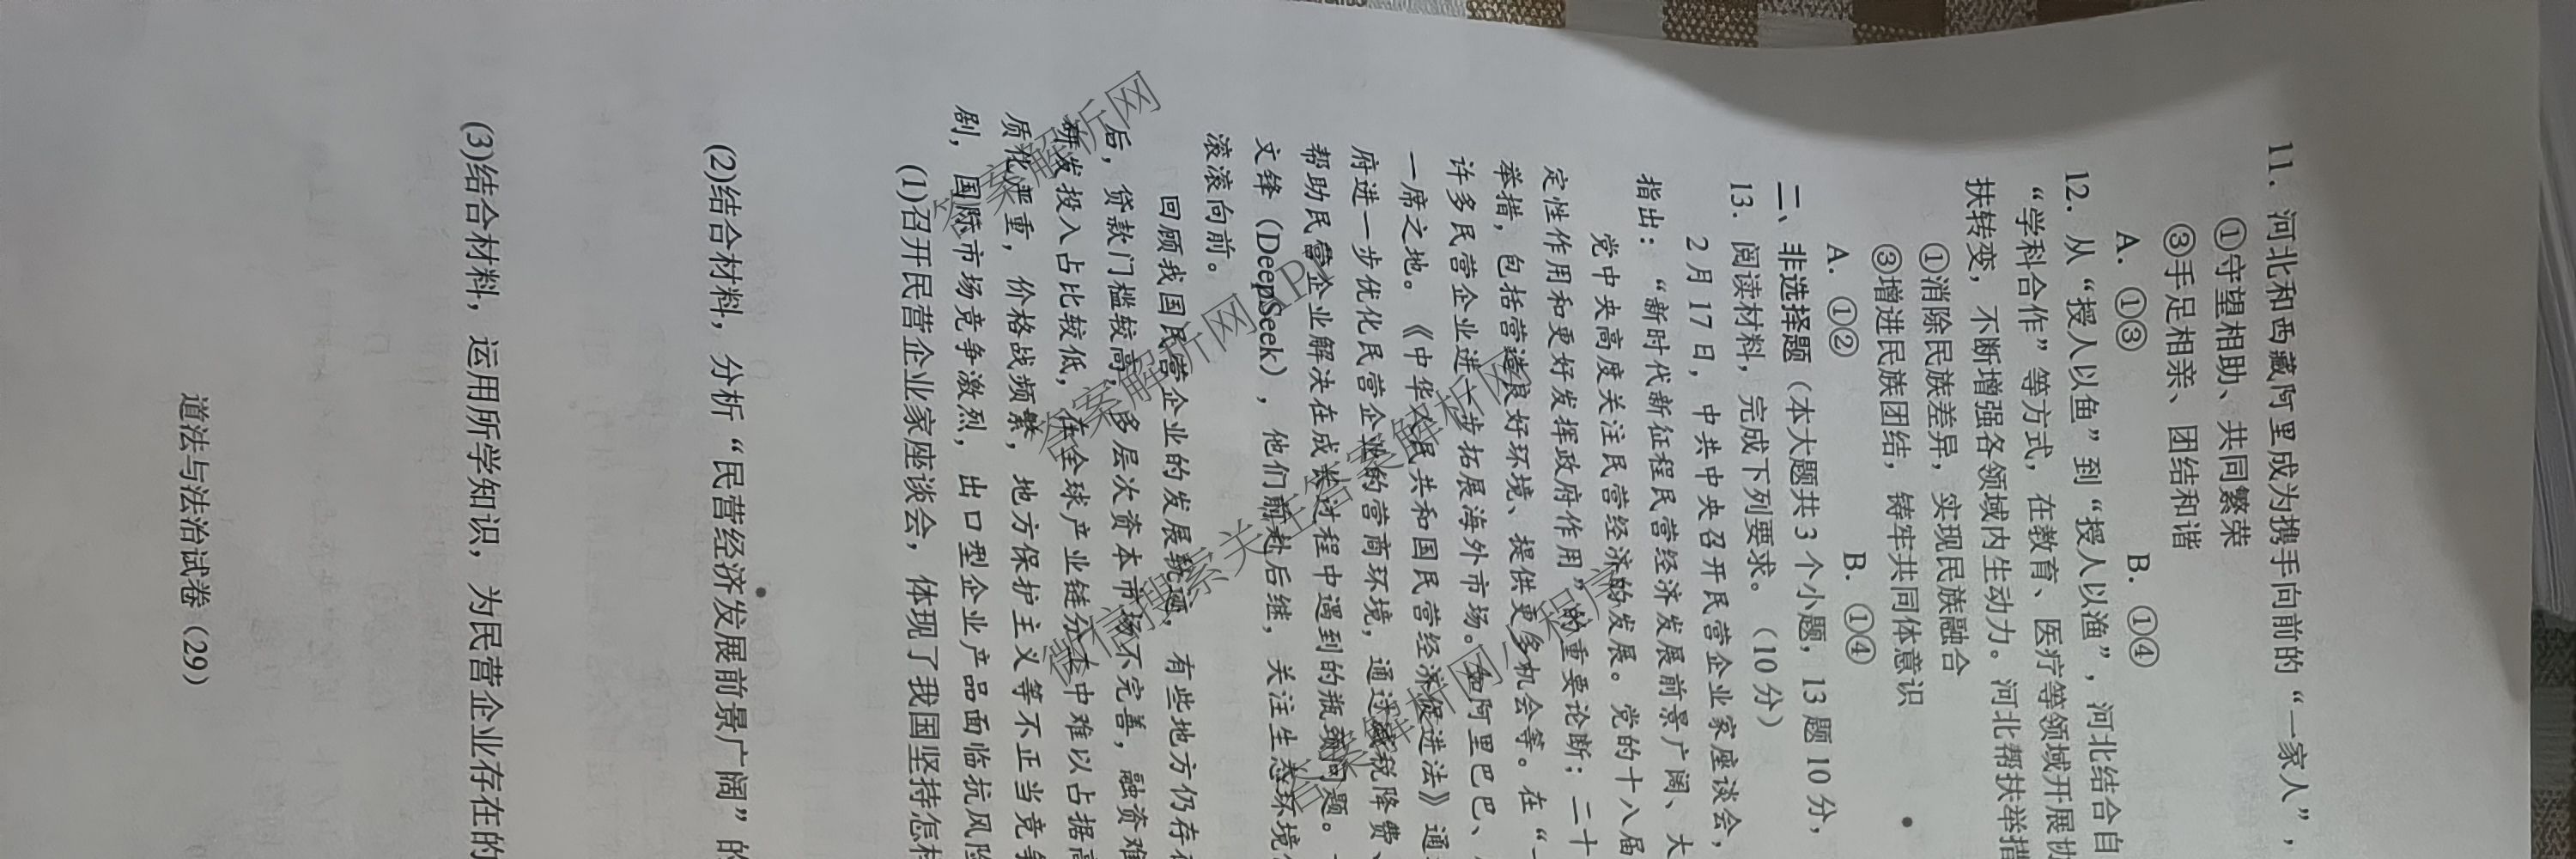 11. 河北和西藏阿里成为携手向前的“一家人”，
①守望相助、共同繁荣
③手足相亲、团结和谐
A. ①③ B. ①④
12. 从“授人以鱼”到“授人以渔”，河北结合自
“学科合作”等方式，在教育、医疗等领域开展协
扶转变，不断增强各领域内生动力。河北帮扶举措
①消除民族差异，实现民族融合
③增进民族团结，铸牢共同体意识
A. ①② B. ①④
二、非选择题（本大题共3个小题，13题10分，
13. 阅读材料，完成下列要求。（10分）
2月17日，中共中央召开民营企业家座谈会，
指出：“新时代新征程民营经济发展前景广阔、大
党中央高度关注民营经济的发展。党的十八届
定性作用和更好发挥政府作用”的重要论断；二十
举措，包括营造良好环境、提供更多机会等。在“一
许多民营企业进一步拓展海外市场。如阿里巴巴、
一席之地。《中华人民共和国民营经济促进法》通
府进一步优化民营企业的营商环境，通过减税降费、
帮助民营企业解决在成长过程中遇到的瓶颈问题。
文锋（DeepSeek），他们前赴后继，关注生态环境
滚滚向前。
回顾我国民营企业的发展轨迹，有些地方仍存
后，贷款门槛较高，多层次资本市场不完善，融资难
研发投入占比较低，在全球产业链分工中难以占据高
质化严重，价格战频繁，地方保护主义等不正当竞争
剧，国际市场竞争激烈，出口型企业产品面临抗风险
(1)召开民营企业家座谈会，体现了我国坚持怎样
(2)结合材料，分析“民营经济发展前景广阔”的
(3)结合材料，运用所学知识，为民营企业存在的
道法与法治试卷（29）